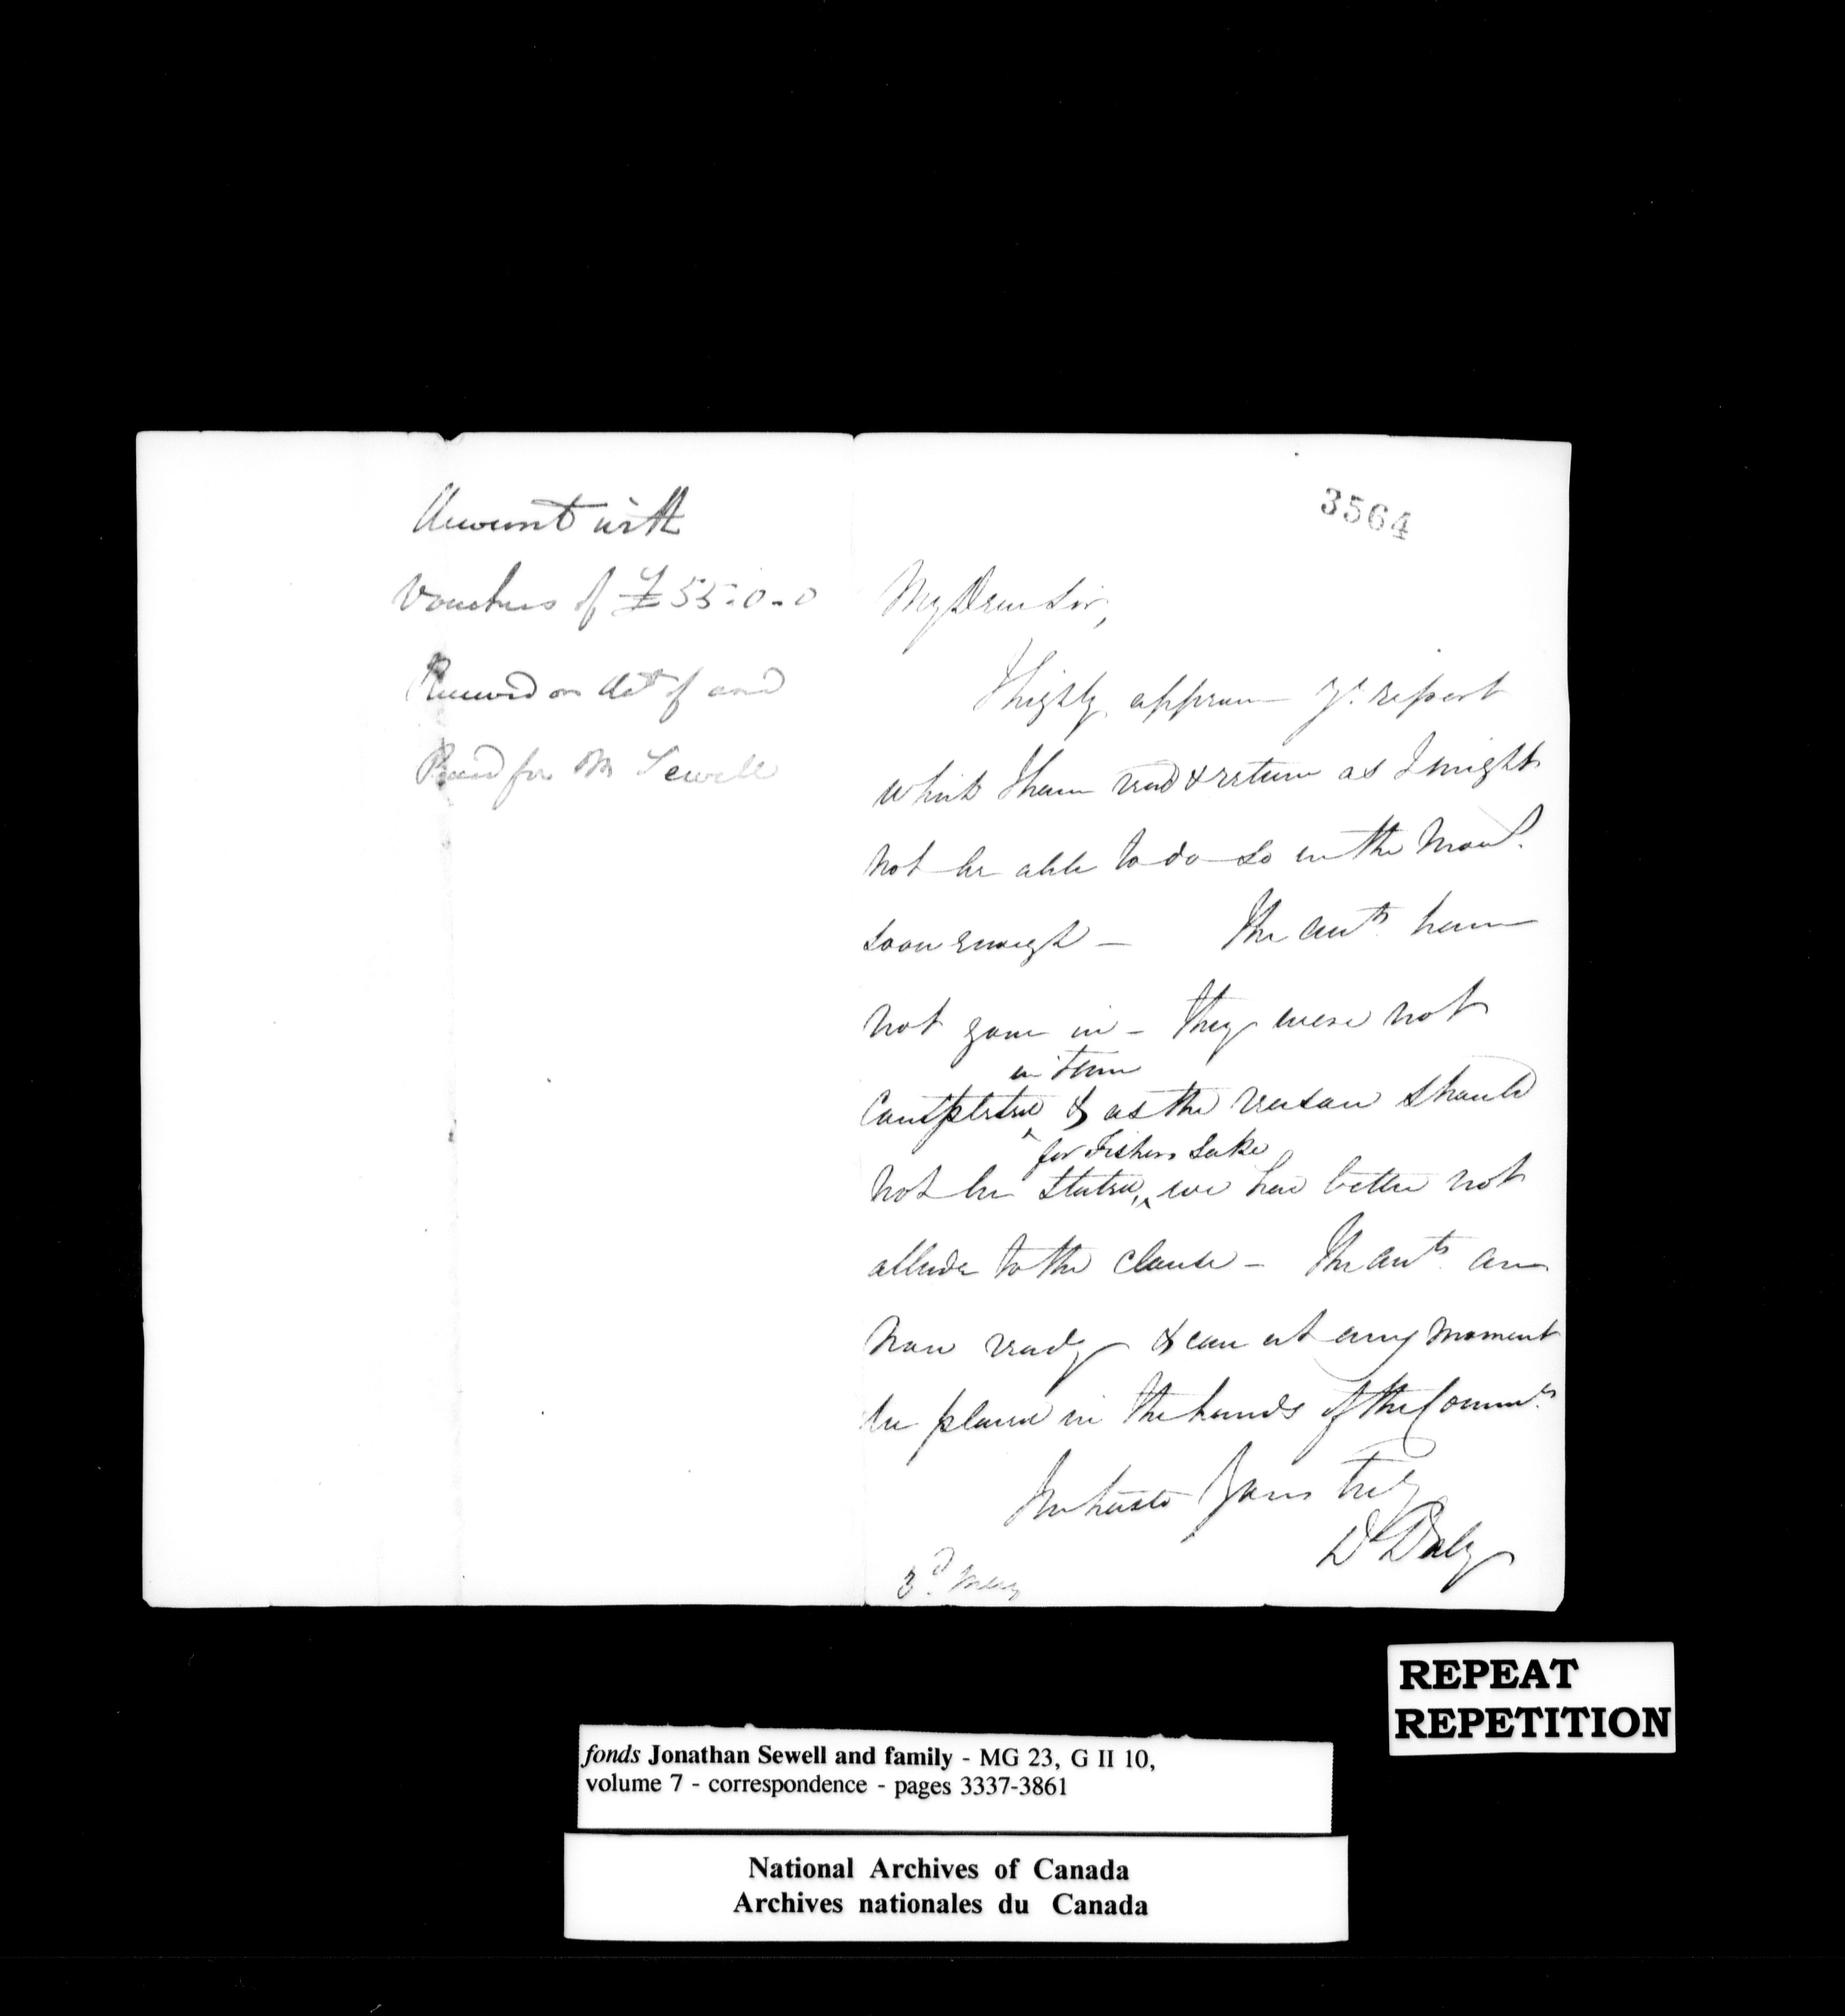 Account with
Vouchers of £55-0-0
Received on Act of and
Paid for Mr Sewell
3564
My Dear Sir,
I highly approve yr. report
which I have read & return as I might
not be able to do so in the
soon enough — The accts. have
not gone in — they were not
in time
completed & as the reason should
for Fishers Sake
not be stated, we had better not
allude to the clause — The accts. are
now ready & can at any moment
be placed in the hands of the Commrs.
In haste Yours truly
D Daly
3d. May
REPEAT
REPETITION
fonds Jonathan Sewell and family - MG 23, G II 10,
volume 7 - correspondence - pages 3337-3861
National Archives of Canada
Archives nationales du Canada